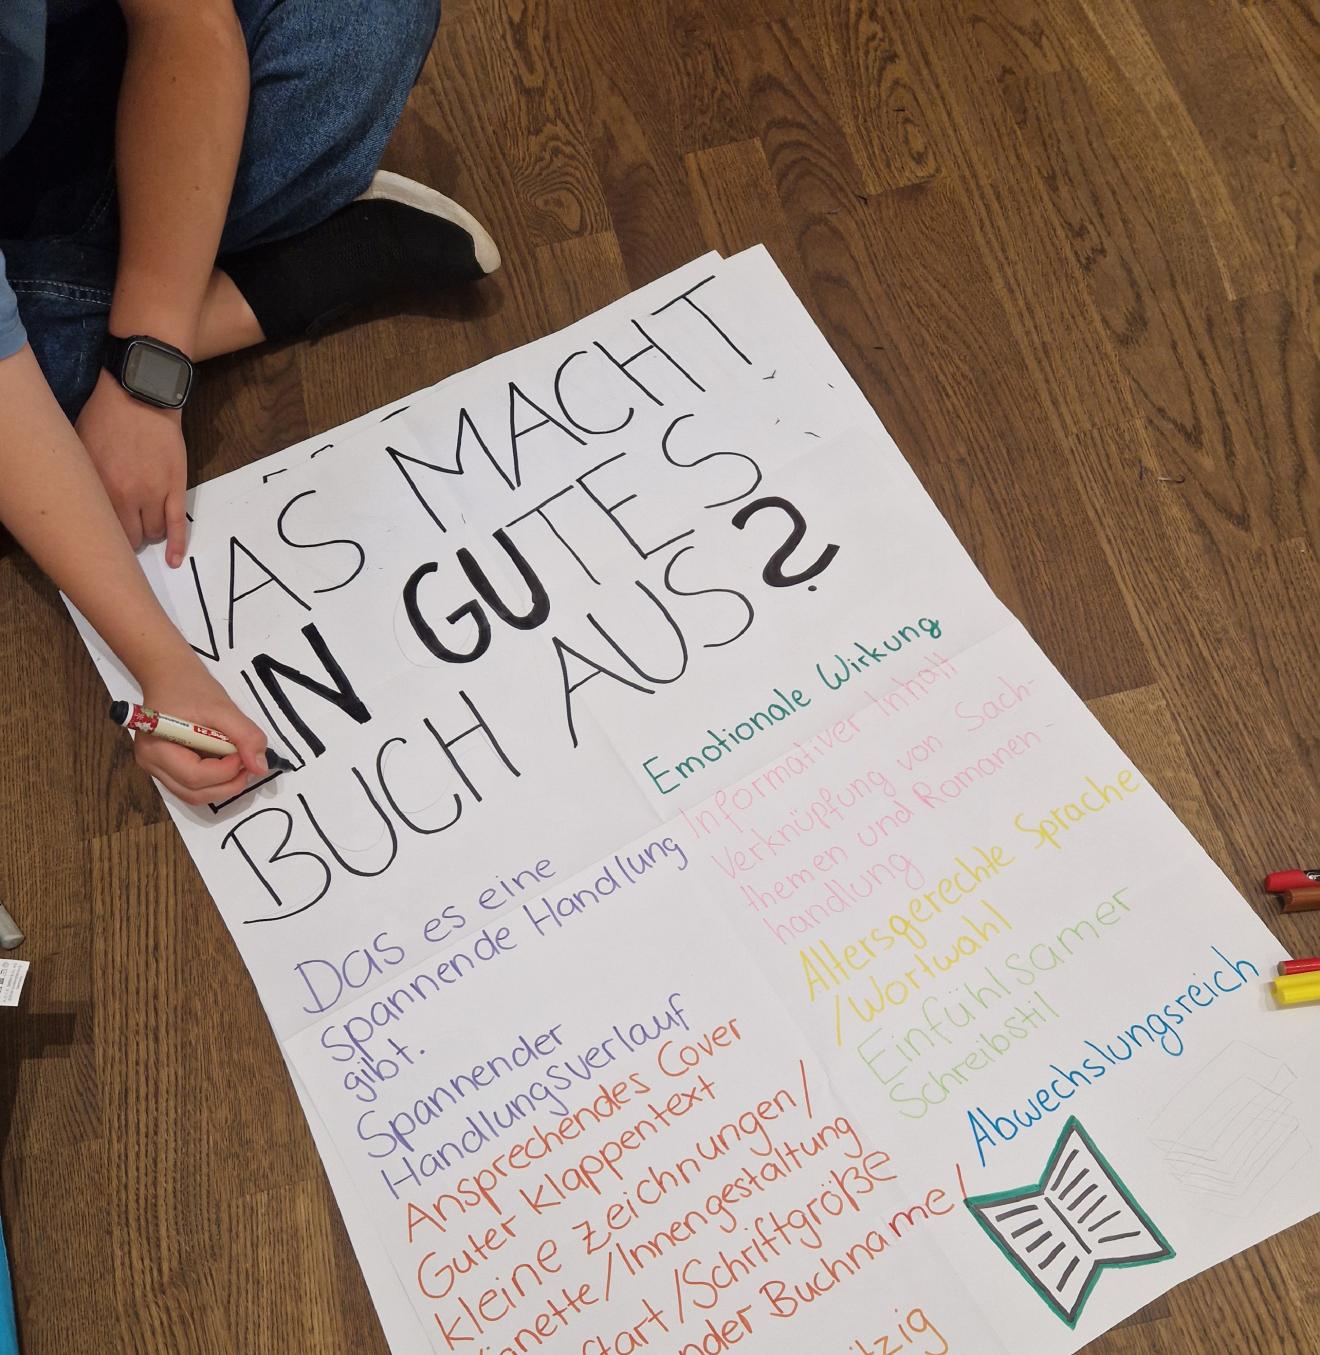 WAS MACHT
EIN GUTES
BUCH AUS?
Das es eine
spannende Handlung
gibt.
Spannender
Handlungsverlauf
Ansprechendes Cover
Guter Klappentext
kleine Zeichnungen/
/Innengestaltung
/Schriftgröße
Buchname/
Emotionale Wirkung
Informativer Inhalt
Verknüpfung von Sach-
themen und Romanen-
handlung
Altersgerechte Sprache
/Wortwahl
Einfühlsamer
Schreibstil
Abwechslungsreich